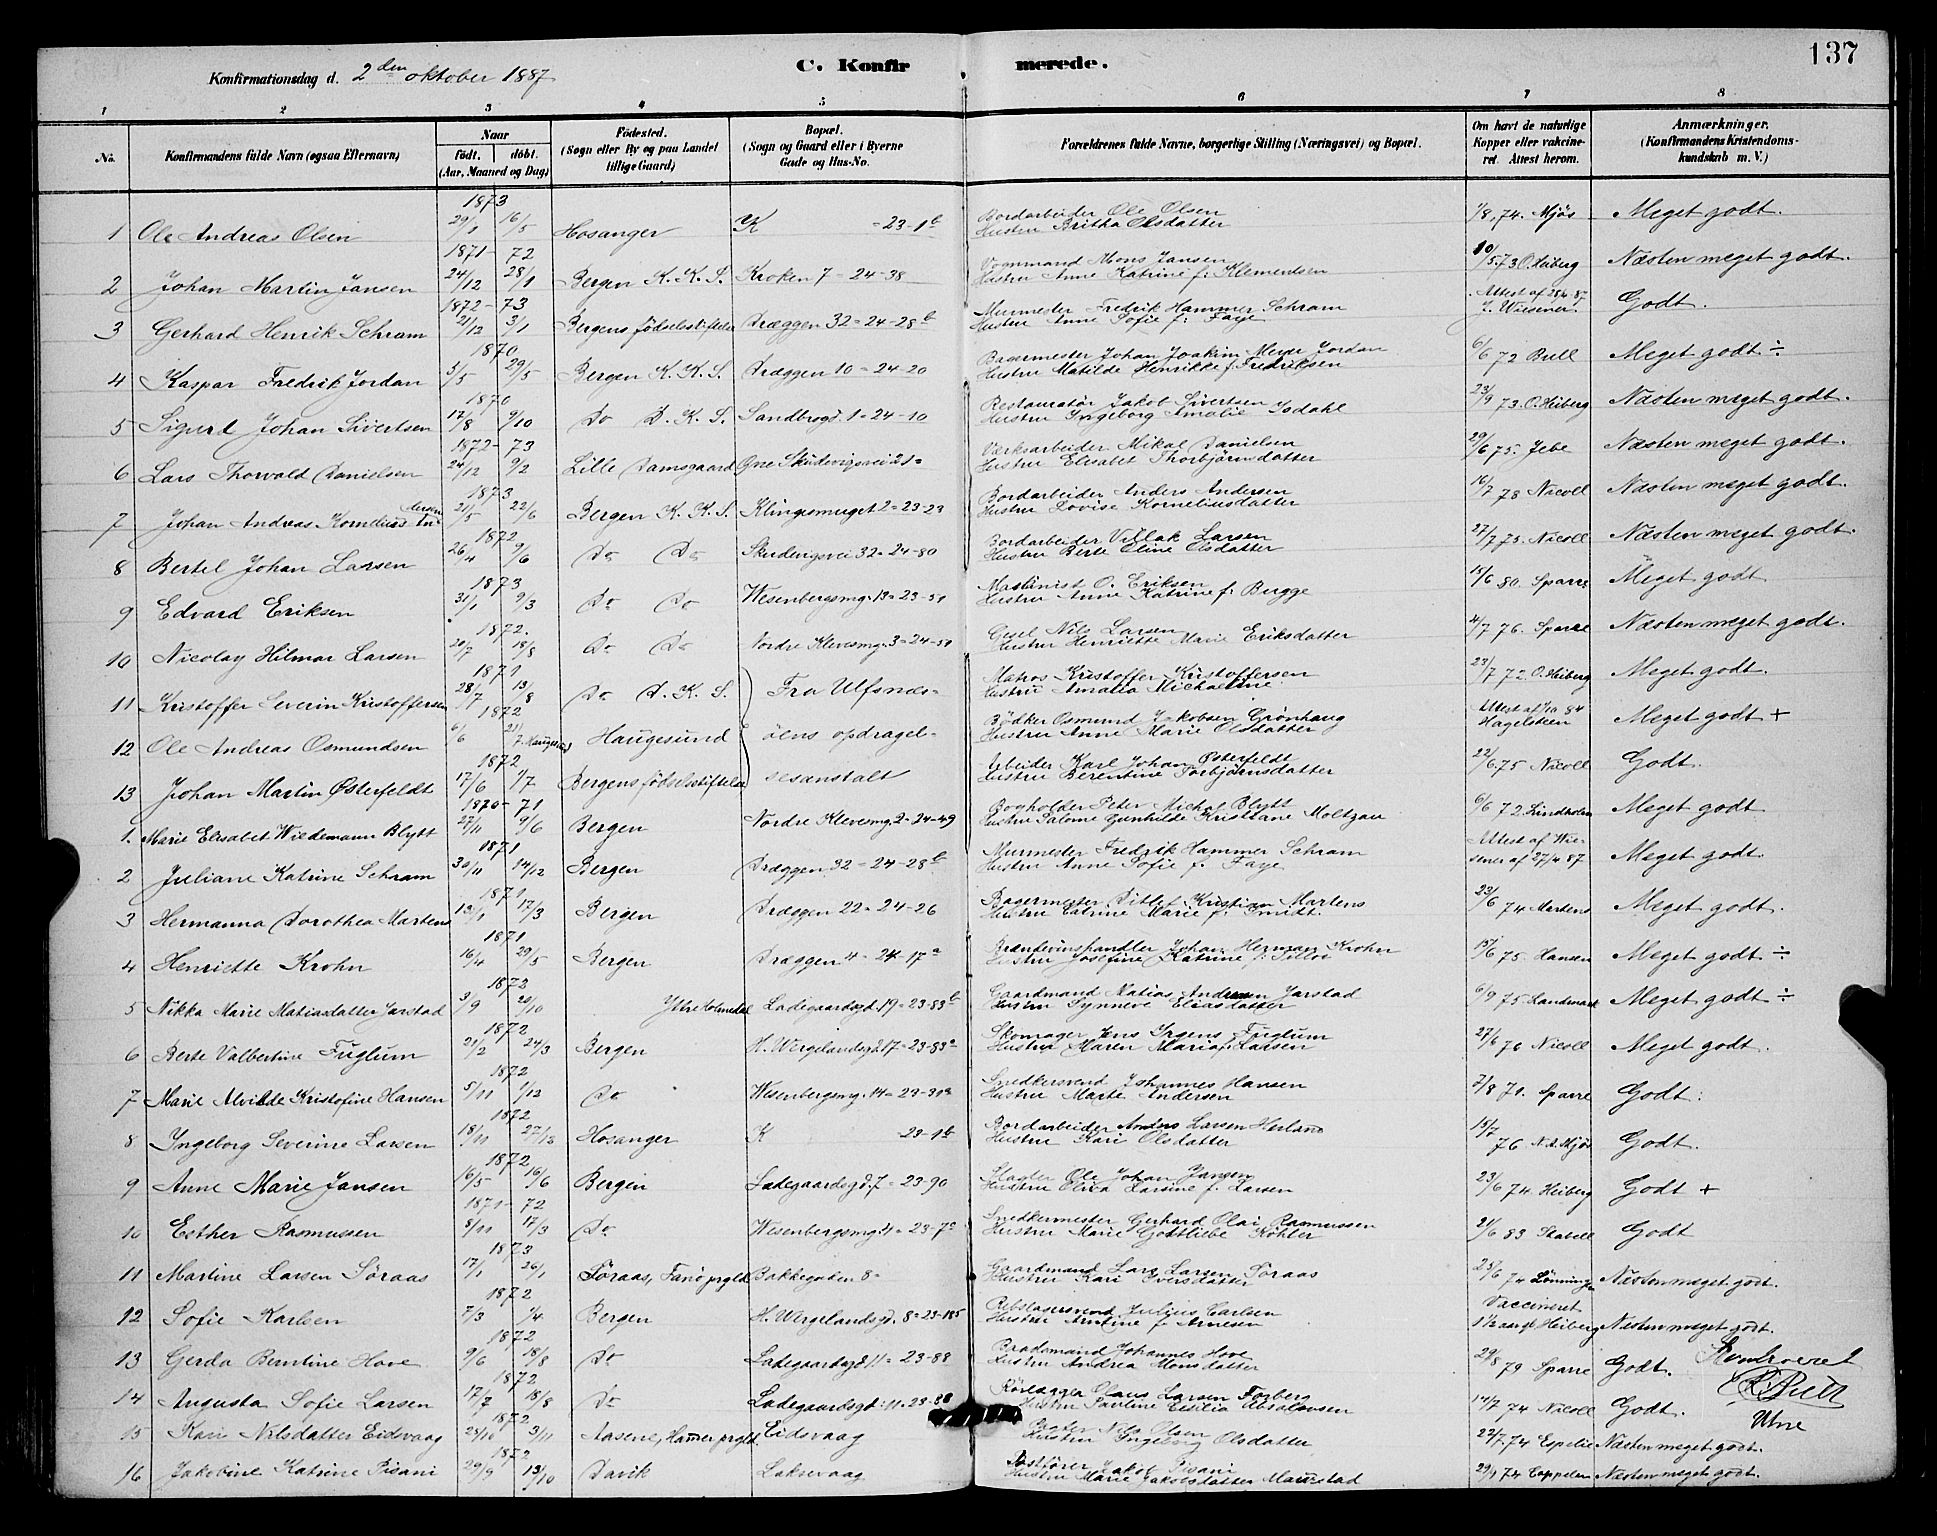 137
Konfirmationsdag d. 2den oktober 1887
C. Konfirmerede.
1 2 3 4 5 6 7 8
No. Konfirmandens fulde Navn (ogsaa Efternavn) Naar født, døbt. (Aar, Maaned og Dag) Fødested. (Sogn eller By og paa Landet tillige Gaard) Bopæl. (Sogn og Gaard eller i Byerne Gade og Hus-No. Forældrenes fulde Navne, borgerlige Stilling (Næringsvei) og Bopæl. Om havt de naturlige Kopper eller vakcineret. Attest herom. Anmærkninger. (Konfirmandens Kristendomskundskab m. V.)
1873
1 Ole Andreas Olsen 29/1 16/5 Hosanger K = 23-1b Bordarbeider Ole Olsen Hustru Britha Olsdatter 1/8 74. Mjøs Meget godt.
1871- 72
2 Johan Martin Jansen 24/12 28/1 Bergen K. K. S. Kroken 7 = 24-38 Vognmand Mons Jansen Hustru Anne Katrine f: Klementsen 10/5 73 O. Heiberg Næsten meget godt.
1872- 73
3 Gerhard Henrik Schram 21/12 3/1 Bergens fødselsstiftelse Dræggen 32 = 24-28b Murmester Fredrik Hammer Schram Hustru Anne Sofie f: Faye Attest af 28/6 87 J. Wiesener Godt.
1870
4 Kaspar Fredrik Jordan 3/5 29/5 Bergen K. K. S. Dræggen 10 = 24-20 Bagermester Johan Joakim Meyer Jordan Hustru Matilde Henrikke f: Fredriksen 6/6 72 Bull Meget godt ÷
1870
5 Sigurd Johan Sivertsen 17/8 9/10 Do D. K. S. Sandbrogd. 1 = 24-10 Restauratør Jakob Sivertsen Hustru Ingeborg Amalie Isdahl 23/9 73. O. Heiberg Næsten meget godt.
1872- 73
6 Lars Thorvald Danielsen 24/12 9/2 Lille Damsgaard Øne Skudevigsvei 21 = Værksarbeider Mikal Danielsen Hustru Elisabet Thorbjørnsdatter 29/6 75. Jebe Næsten meget godt.
1873
7 Johan Andreas Kornelius Andersen 21/5 22/6 Bergen K. K. S. Klingesmuget 2 = 23-23 Bordarbeider Anders Andersen Hustru Lovise Korneliusdatter 16/7 78 Nicoll Næsten meget godt.
1872
8 Bertel Johan Larsen 26/4 9/6 Do Do Skudevigsvei 32 = 24-80 Bordarbeider Villak Larsen Hustru Berte Eline Olsdatter 27/7 75. Nicoll Næsten meget godt.
1873
9 Edvard Eriksen 31/1 9/3 Do Do Wesenbergsmg. 13 = 23-51 Maskinist O. Eriksen Hustru Anne Katrine f: Bugge 15/6 80. Sparre Meget godt
1872.
10 Nicolay Hilmar Larsen 20/7 18/8 Do Do Nordre Klevesmg. 3 = 24-51 Gesel Nils Larsen Hustru Henriette Marie Eriksdatter 4/7 76. Sparre Næsten meget godt.
1871
11 Kristoffer Severin Kristoffersen 28/7 13/8 Do D. K. S. Fra Ulfsnæs- Matros Kristoffer Kristoffersen Hustru Amalia Michaeline 23/7 72 O. Heiberg Meget godt.
1872
12 Ole Andreas Osmundsen 6/6 21/7. Haugesund Haugesund øens opdragel- Bødker Osmund Jakobsen Grønhaug Hustru Anne Marie Olsdatter Attest af 1/10 84 Hagelsteen Meget godt +
1872
13 Johan Martin Østerfeldt 17/6 1/7 Bergens fødselsstiftelse sesanstalt Arbeider Karl Johan Østerfeldt Hustru Berentine Torbjørnsdatter 22/6 75 Nicoll Godt.
1870- 71
1. Marie Elisabet Wiedemann Blytt 27/11 9/6 Bergen Nordre Klevesmg. 2 = 24-49 Bogholder Peter Michal Blytt Hustru Salome Gunhilde Kristiane Moltzau 6/6 72 Lindholm Meget godt
1871
2 Juliane Katrine Schram 30/11 14/12 Bergen Dræggen 32 = 24-28b Murmester Fredrik Hammer Schram Hustru Anne Sofie f. Faye Attest af Wiesener af 27/4 87 Meget godt.
1871
3 Hermanna Dorothea Martens 13/1 17/3 Bergen Dræggen 22 = 24-26 Bagermester Ditlef Kristian Martens Hustru Catrine Marie f. Smidt. 23/6 74 Martens Meget godt.
1871
4 Henriette Krohn 16/4 29/5 Bergen Dræggen 4 = 24-17a Brændevinshandler Johan Herman Krohn Hustru Josefine Katrine f: 15/6 75 Hansen Meget godt ÷
1872
5 Nikka Marie Matiasdatter Jarstad 3/9 20/10 Ytre Holmedal Ladegaardsgd. 19 = 23-83b Gaardmand Matias Andersen Jarstad Hustru Synneve Eliasdatter 6/9 75 Landmark Meget godt ÷
1872
6 Berte Valbertine Fuglum 21/2 24/3 Bergen H. Wergelandsgd. 17 = 23-83a Skomager Jens Irgens Fuglum Hustru Maren Maria f. Larsen 27/6 76 Nicoll Meget godt.
1872
7 Marie Alvilde Kristofine Hansen 5/11 1/12 Do Wesenbergsmg. 14 = 23-31a Snedkersvend Johannes Hansen Hustru Marte Andersen 7/8 71. Sparre Godt.
1872
8 Ingeborg Severine Larsen 18/11 27/12 Hosanger K 23-1b Bordarbeider Anders Larsen Herland Hustru Kari Olsdatter 15/7 76 N. A. Mjøs Godt.
1872
9 Anne Marie Jansen 16/5 16/6 Bergen Ladegaardsgd. 7 = 23-90 Slagter Ole Johan Jansen Hustru Elica Larsine f. Larsen 23/6 74 Heiberg Godt +
1871- 72
10 Esther Rasmussen 8/11 17/3 Do Wesenbergsmg. 11 = 23-7a Snedkermester Gerhard Olai Rasmussen Hustru Marie Gottliebe Köhler 21/6 83 Stabell Godt
1873
11 Martine Larsen Søraas 17/1 26/1 Søraas, Fanø prgld. Bakkegaden 8 = Gaardmand Lars Larsen Søraas Hustru Kari Iversdatter 25/6 74 Lønningen Næsten meget godt.
1872
12 Sofie Karlsen 7/3 1/4 Bergen H. Wergelandsgd. 8 = 23-185 Rebslagersvend Julius Carlsen Hustru Arntine f. Arnesen Vaccineret 1 1/2 aargl. Heiberg Næsten meget godt.
1872
13 Gerda Berntine Hove 9/6 18/8 Do Ladegaardsgd. 11 = 23-88 Braadsmand Johannes Hove Hustru Andrea Monsdatter 29/8 79 Sparre Godt.
1872
14 Augusta Sofie Larsen 17/7 18/8 Do Ladegaardsgd. 11 = 23-88 Olaus Larsen Forberg Hustru Pauline Cecilia Absalonsen 14/7 74 Nicoll Godt.
1872
15 Kari Nilsdatter Eidsvaag 28/10 3/11 Aasene, Hammer prgld. Eidsvaag Nils Olsen Hustru Ingeborg Olsdatter 22/7 74 Espelie Næsten meget godt.
1872
16 Jakobine Katrine Pisani 29/9 13/10 Davik Laksevaag Postfører Jakob Pisani Hustru Marie Jakobsdatter Maurstad 29/9 74 Cappelen Næsten meget godt.
Kontroleret
Utne